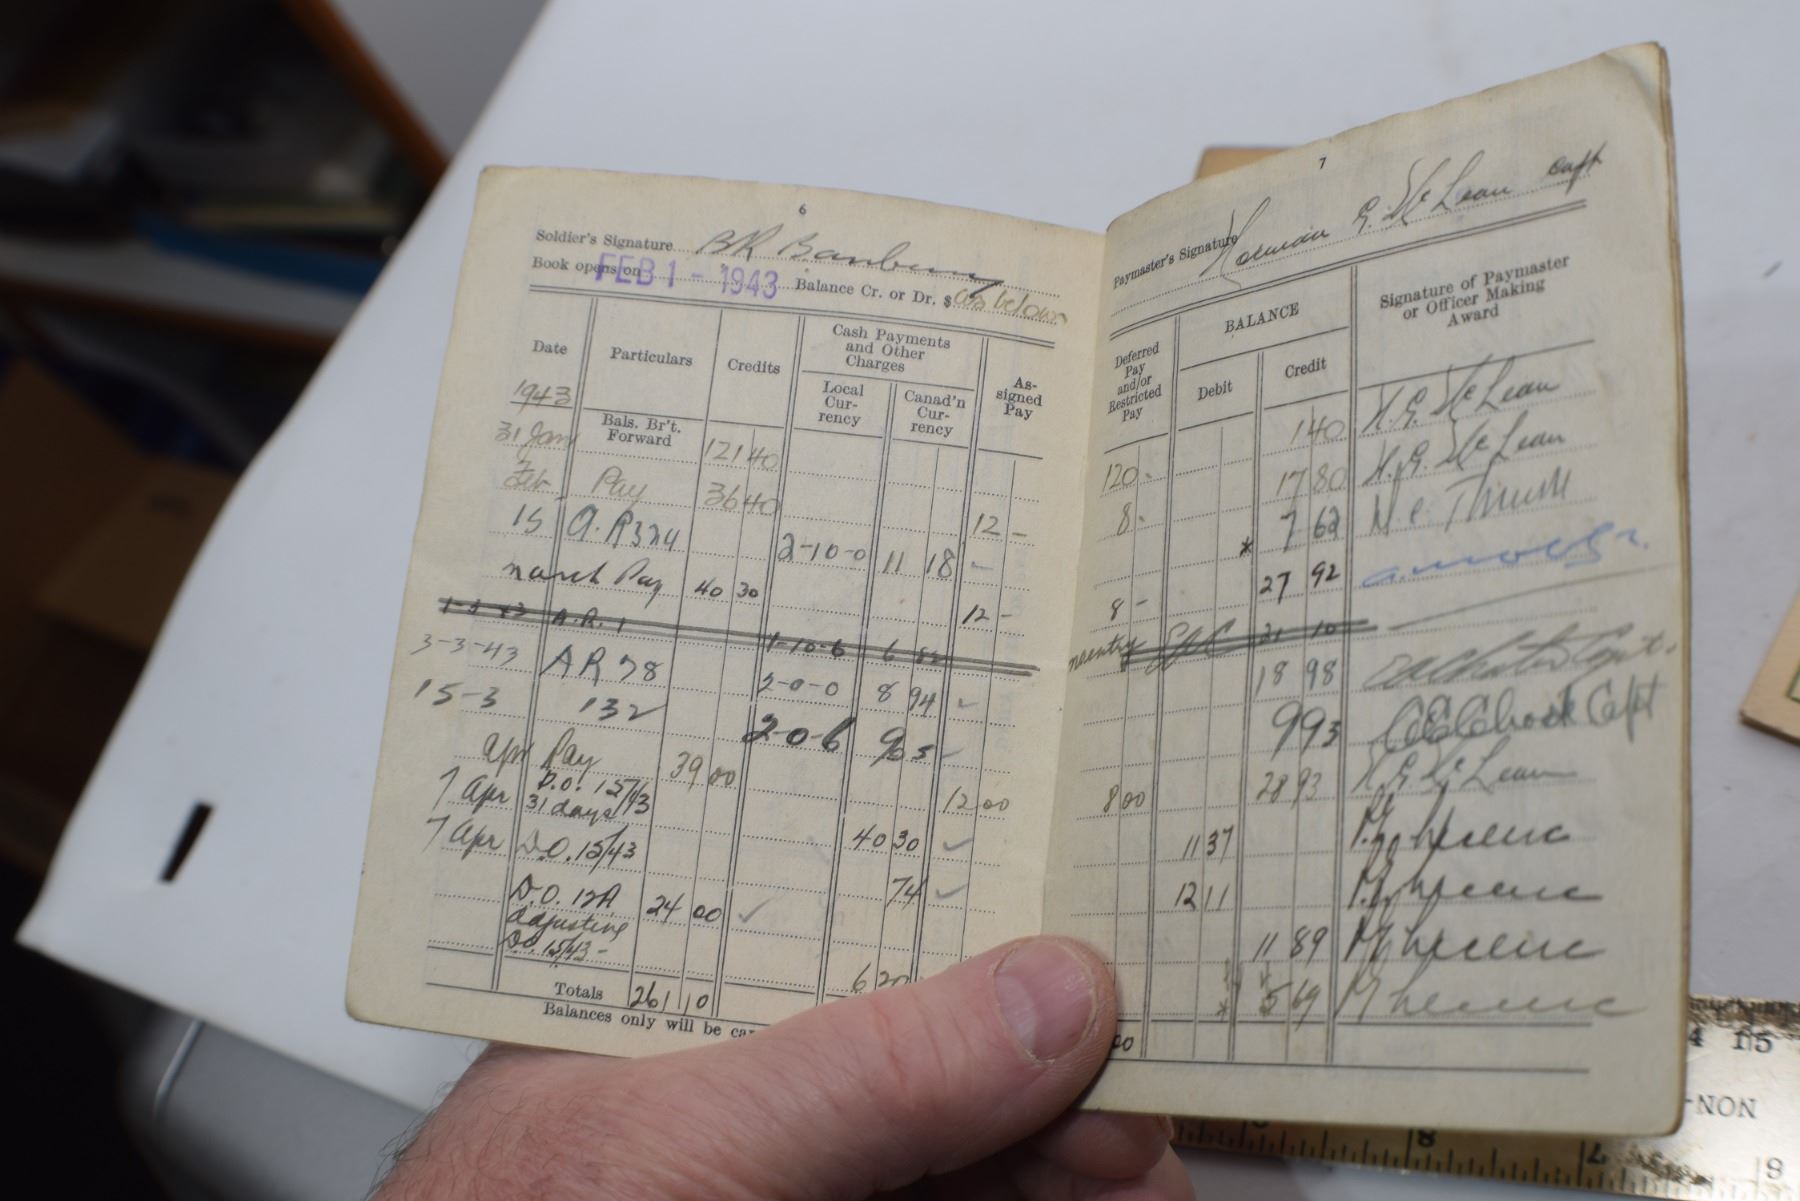 6
Soldier's Signature BR Banbury
Book opens on FEB 1 - 1943 Balance Cr. or Dr. $ as below
Date
Particulars
Credits
Cash Payments
and Other
Charges
Local
Cur-
rency
Canad'n
Cur-
rency
As-
signed
Pay
1943
31 Jan Bals. Br't. Forward 121 40
Feb. Pay 36 40 12 -
15 A.R 324 2-10-0 11 18
March Pay 40 30 12 -
1-3-43 A.R. 1 1-10-6 6 82
3-3-43 AR 78 2-0-0 8 94
15-3 132 2-0-6 9 05
Apr Pay 39 00 12 00
7 Apr D.O. 15/43 31 days 40 30
7 Apr D.O. 15/43 74
D.O. 12A 24 00
adjusting
DO. 15/43 -
6 20
Totals 261 10
Balances only will be
7
Paymaster's Signature Norman G. McLean Capt
Deferred
Pay
and/or
Restricted
Pay
BALANCE
Debit
Credit
Signature of Paymaster
or Officer Making
Award
120 - 1 40 N.G. McLean
8 - 17 80 N.G. McLean
* 7 62
8 - 27 92
21 10
18 98
9 93 Capt
8 00 28 93 N G McLean
11 37
12 11
11 89
* 5 69
00
4 15
NON
8
7
8